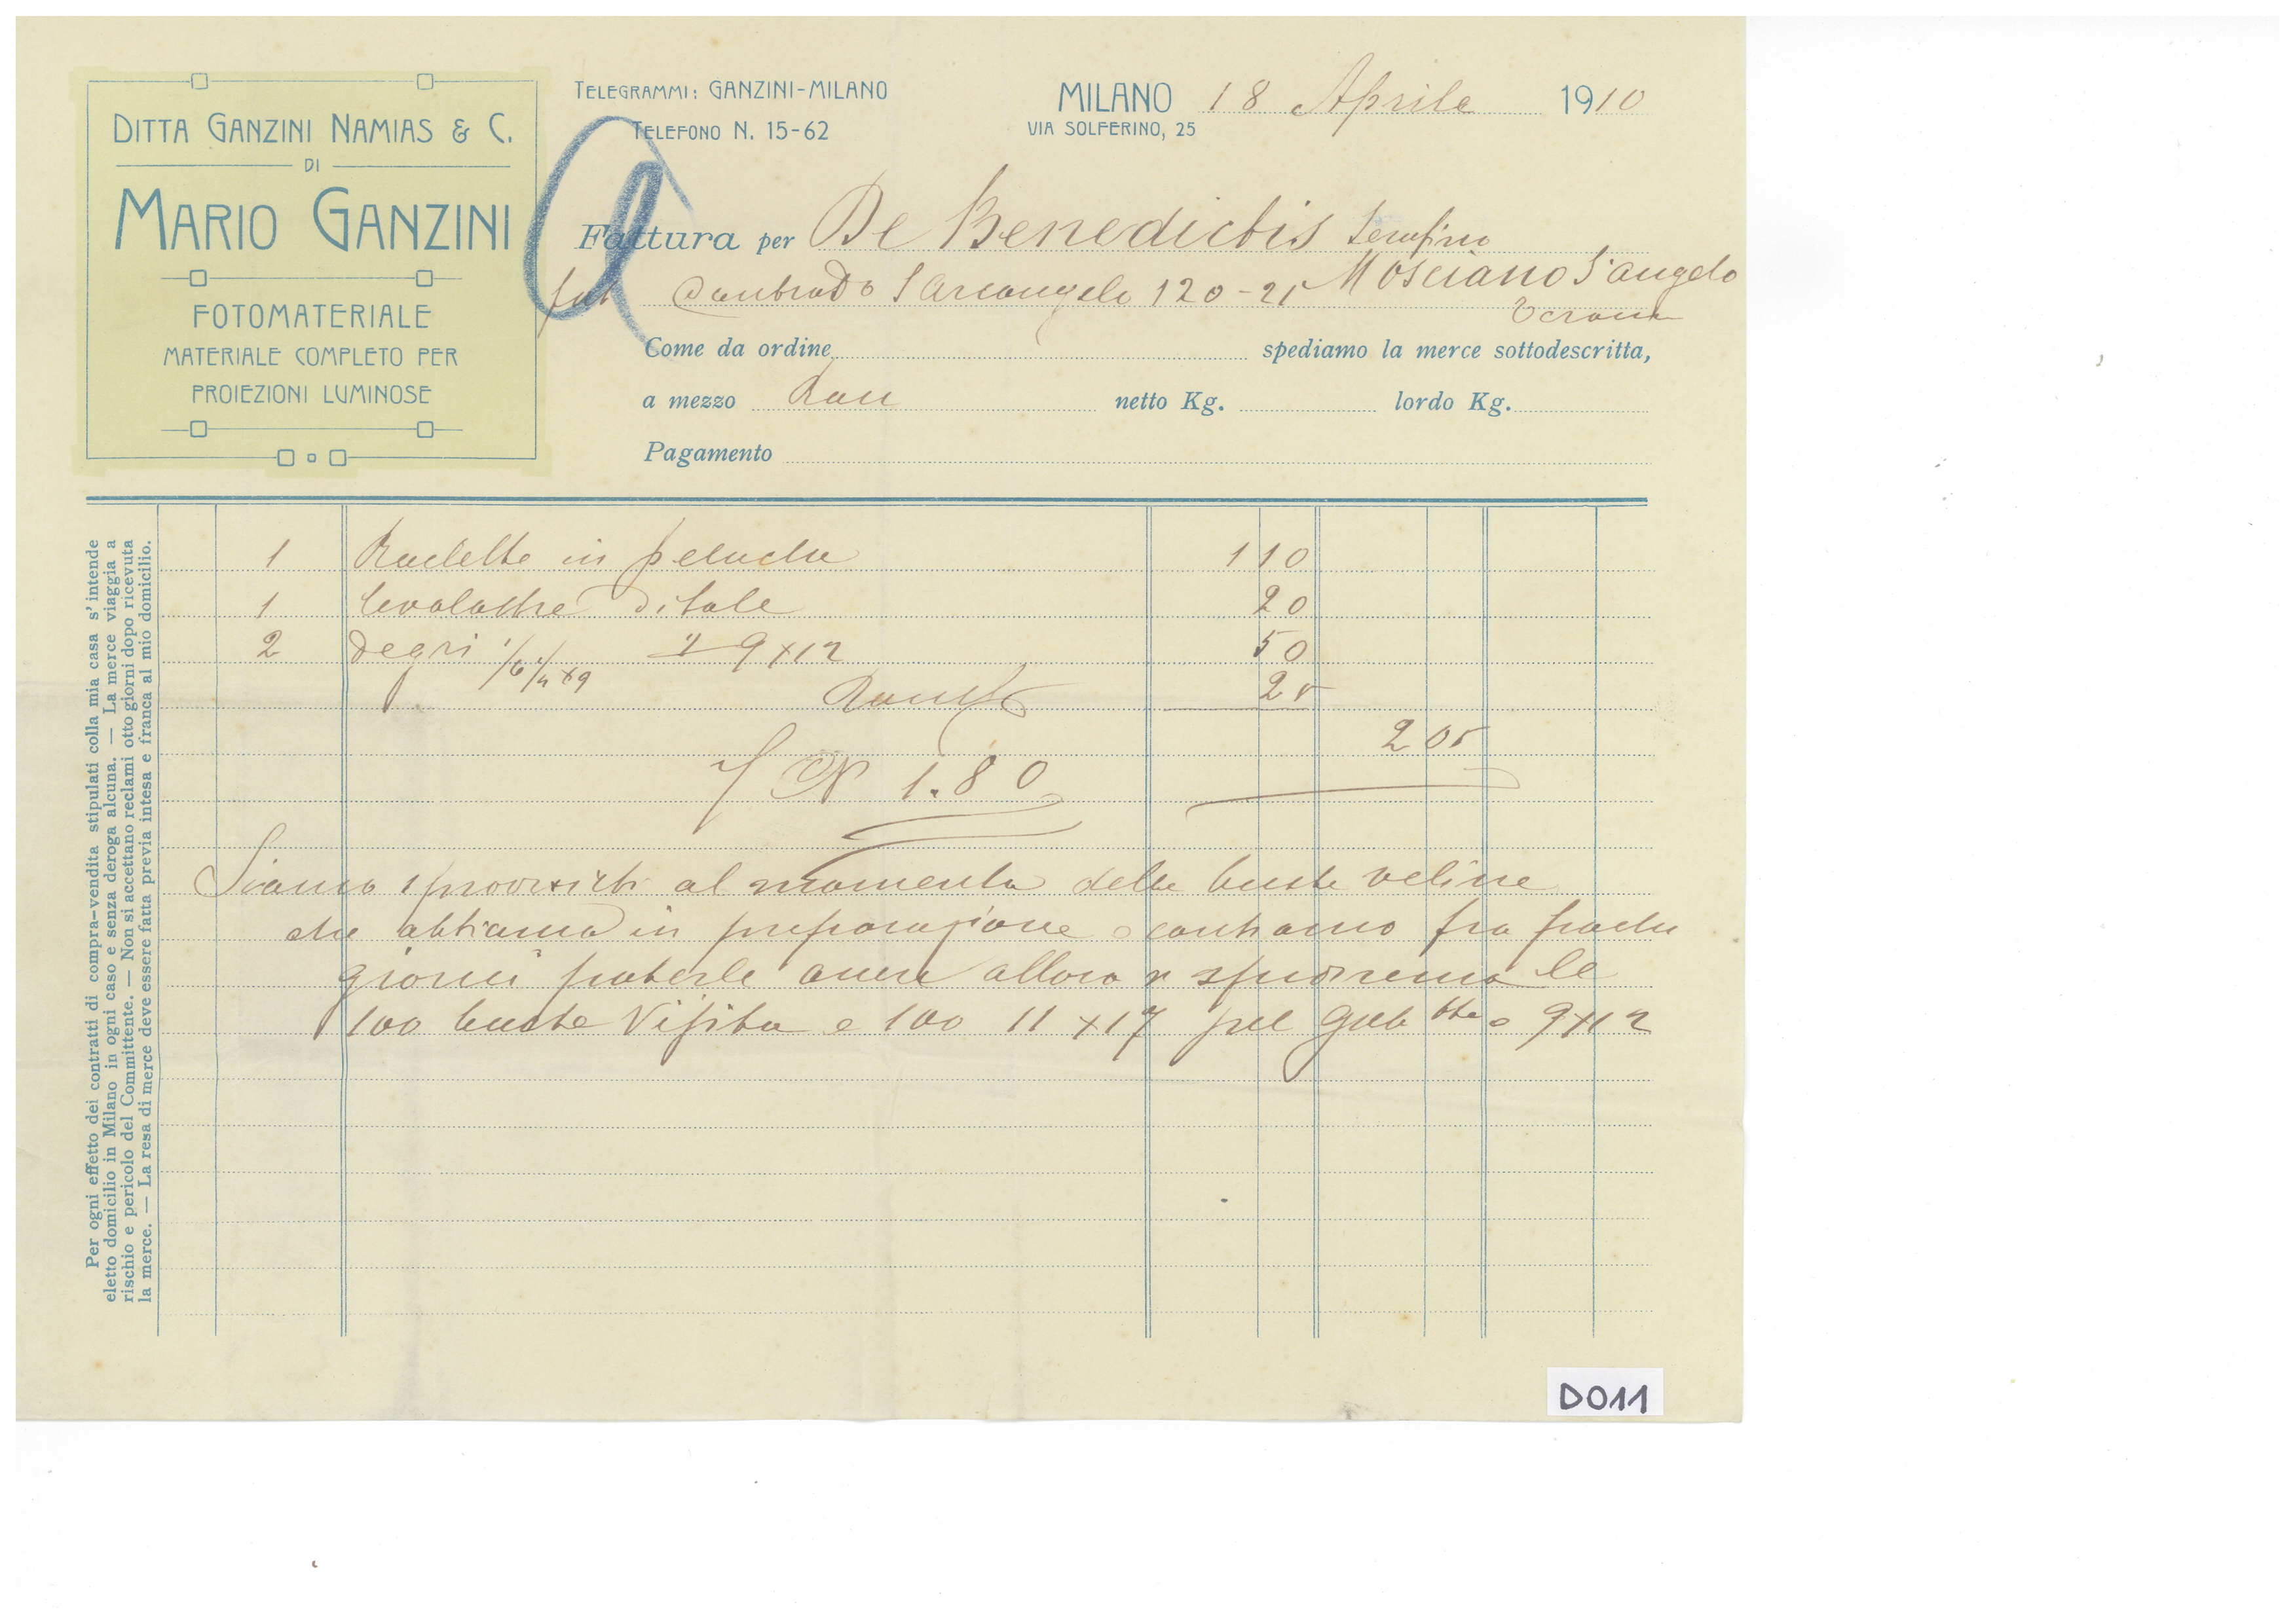 DITTA GANZINI NAMIAS & C.
DI
MARIO GANZINI
FOTOMATERIALE
MATERIALE COMPLETO PER
PROIEZIONI LUMINOSE
TELEGRAMMI: GANZINI-MILANO
TELEFONO N. 15-62
MILANO 18 Aprile 1910
VIA SOLFERINO, 25
Fattura per De Benedictis Serafino
S Arcangelo 120-21 Mosciano S. Angelo
Come da ordine spediamo la merce sottodescritta,
a mezzo netto Kg. lordo Kg.
Pagamento
1 in peluche 110
1 ditale 20
2 9x12 50
25
205
1.80
Siamo sprovvisti al momento delle buste veline
che abbiamo in preparazione e contiamo fra pochi
giorni poterle avere allora spediremo le
100 buste Visita e 100 11x17 pel 9x12
Per ogni effetto dei contratti di compra-vendita stipulati colla mia casa s'intende
eletto domicilio in Milano in ogni caso e senza deroga alcuna. — La merce viaggia a
rischio e pericolo del Committente. — Non si accettano reclami otto giorni dopo ricevuta
la merce. — La resa di merce deve essere fatta previa intesa e franca al mio domicilio.
D011